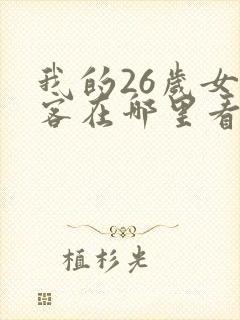 我的26岁女
客在哪里看
植杉光